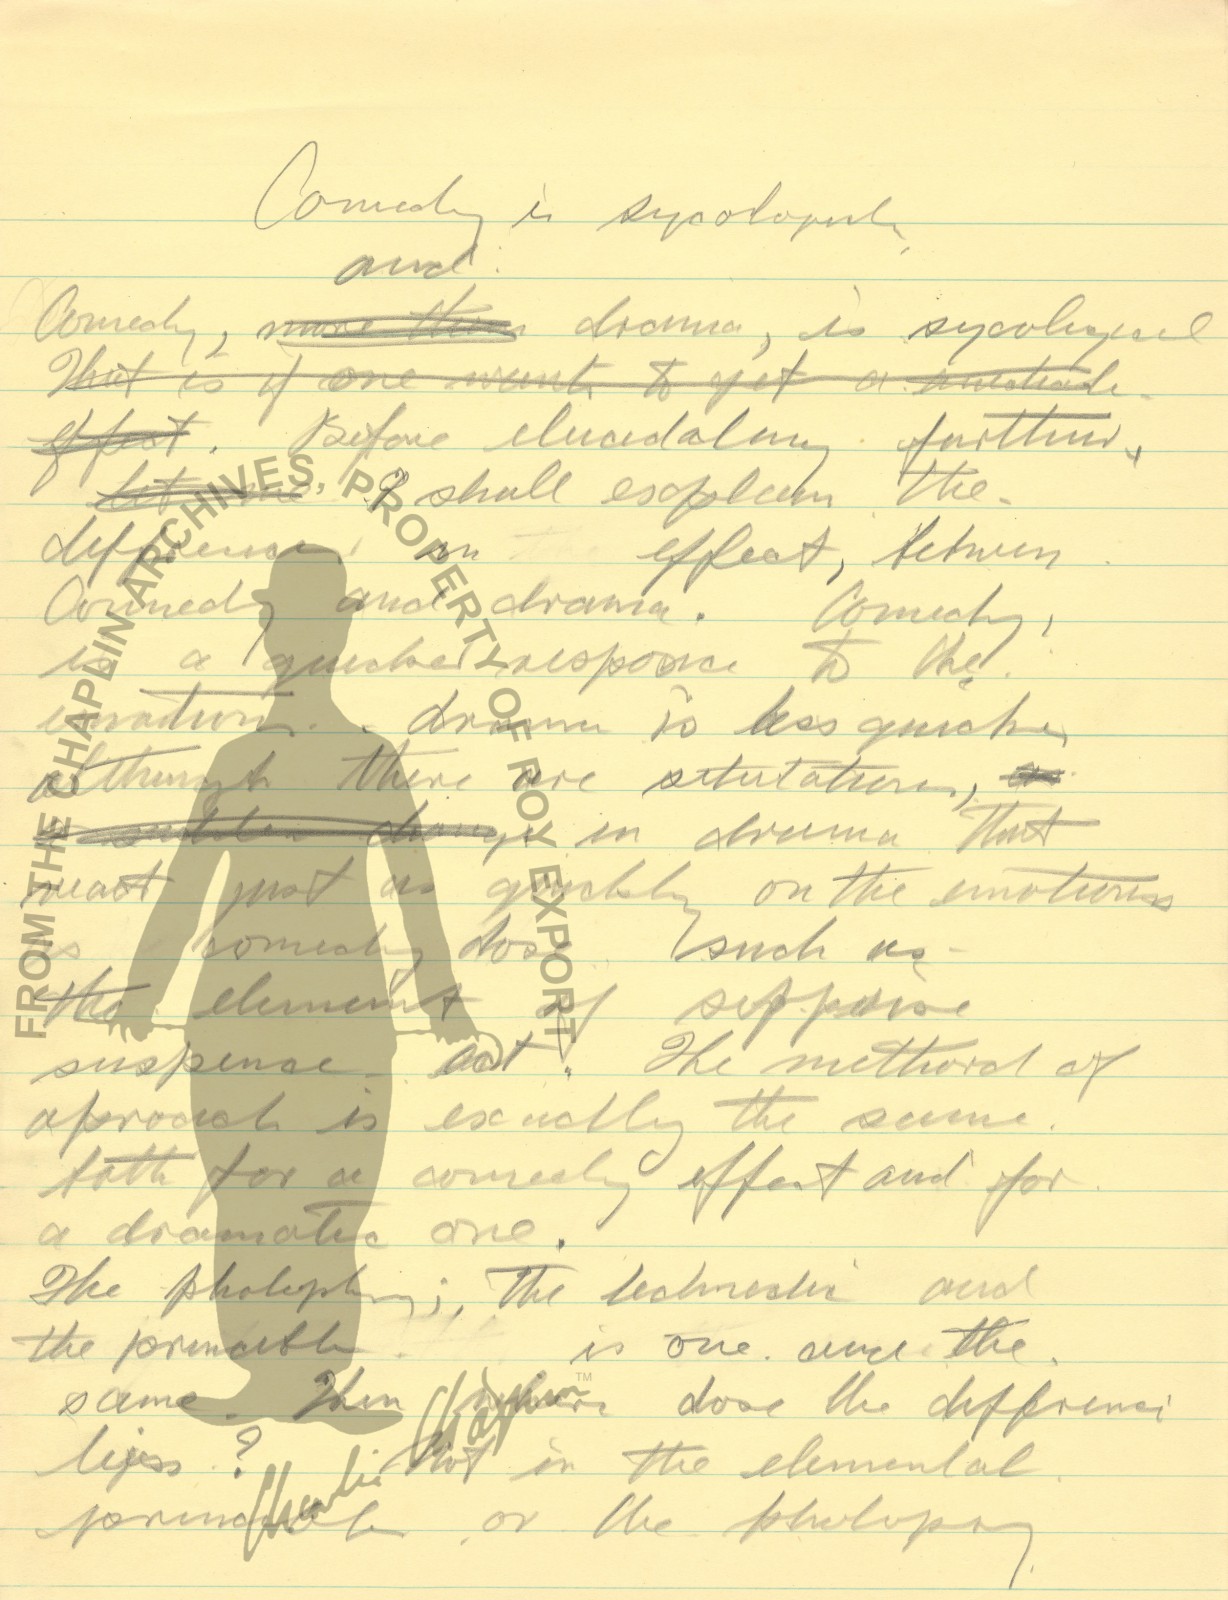 Comedy is
and
Comedy, more then drama, is sycological
That is if one wants to get a
effect. Before elucedalung further,
let me I shall explain the
differenc in effect, between
Comedy and drama. Comedy,
is a quicker responce to the
emotions. drama is less quicker
although there are setutations,
sudden change in drama that
react just as quickly on the emotions
as comedy dose such as
the element of
suspense ect. The method of
aproach is exactly the same
both for a comedy effect and for
a dramatic one.
The the and
the is one and the
same. Then where dose the differenc
? Not in the elemental
or the
FROM THE CHAPLIN ARCHIVES, PROPERTY OF ROY EXPORT
Charlie Chaplin TM